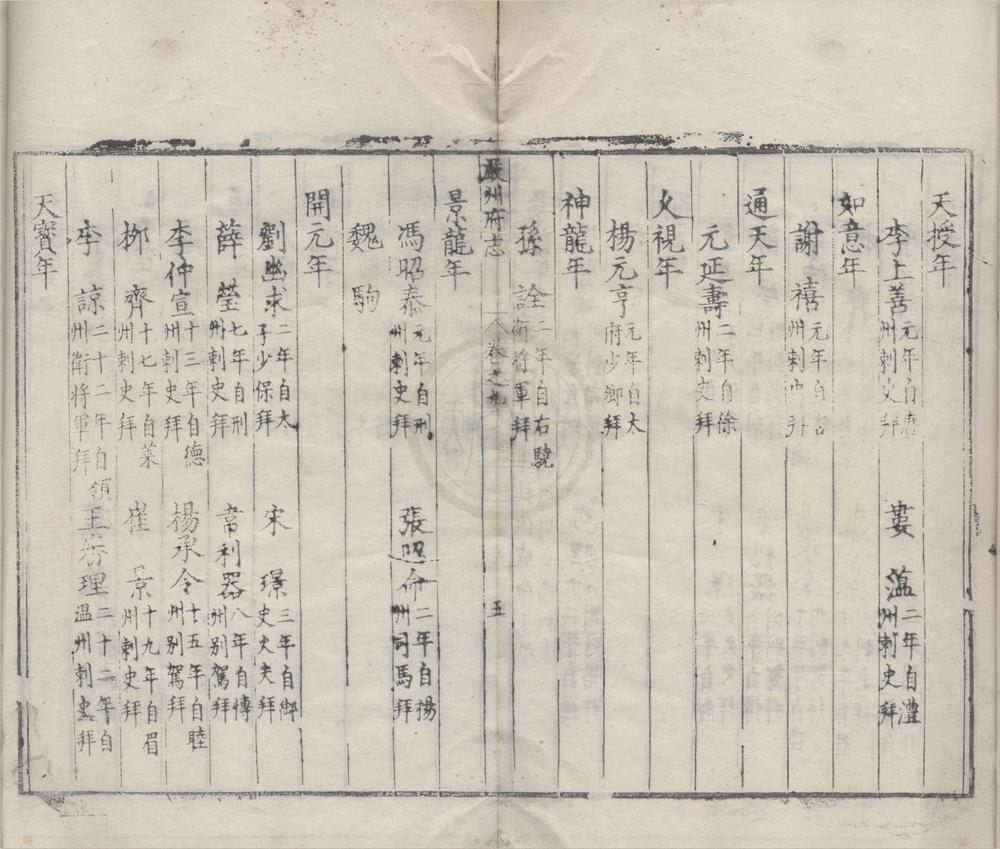 天授年
李上善元年自州刺史拜 婁蒀二年自澧州刺史拜
如意年
謝禧元年自州刺史拜
通天年
元延壽二年自徐州刺史拜
火視年
楊元亨元年自太府少卿拜
神龍年
孫詮二年自右驍衛將軍拜
嚴州府志 卷之九 五
景龍年
馮昭泰元年自刑州刺史拜 張照命二年自揚州司馬拜
魏駒
開元年
劉幽求二年自太子少保拜 宋璟三年自御史大夫拜
薛瑩七年自刑州刺史拜 韋利器八年自愽州別駕拜
李仲宣十三年自德州刺史拜 楊承令十五年自睦州別駕拜
栁齊十七年自萊州刺史拜 崔景十九年自眉州刺史拜
李諒二十二年自領州衛將軍拜 王理二十二年自温州刺史拜
天寶年